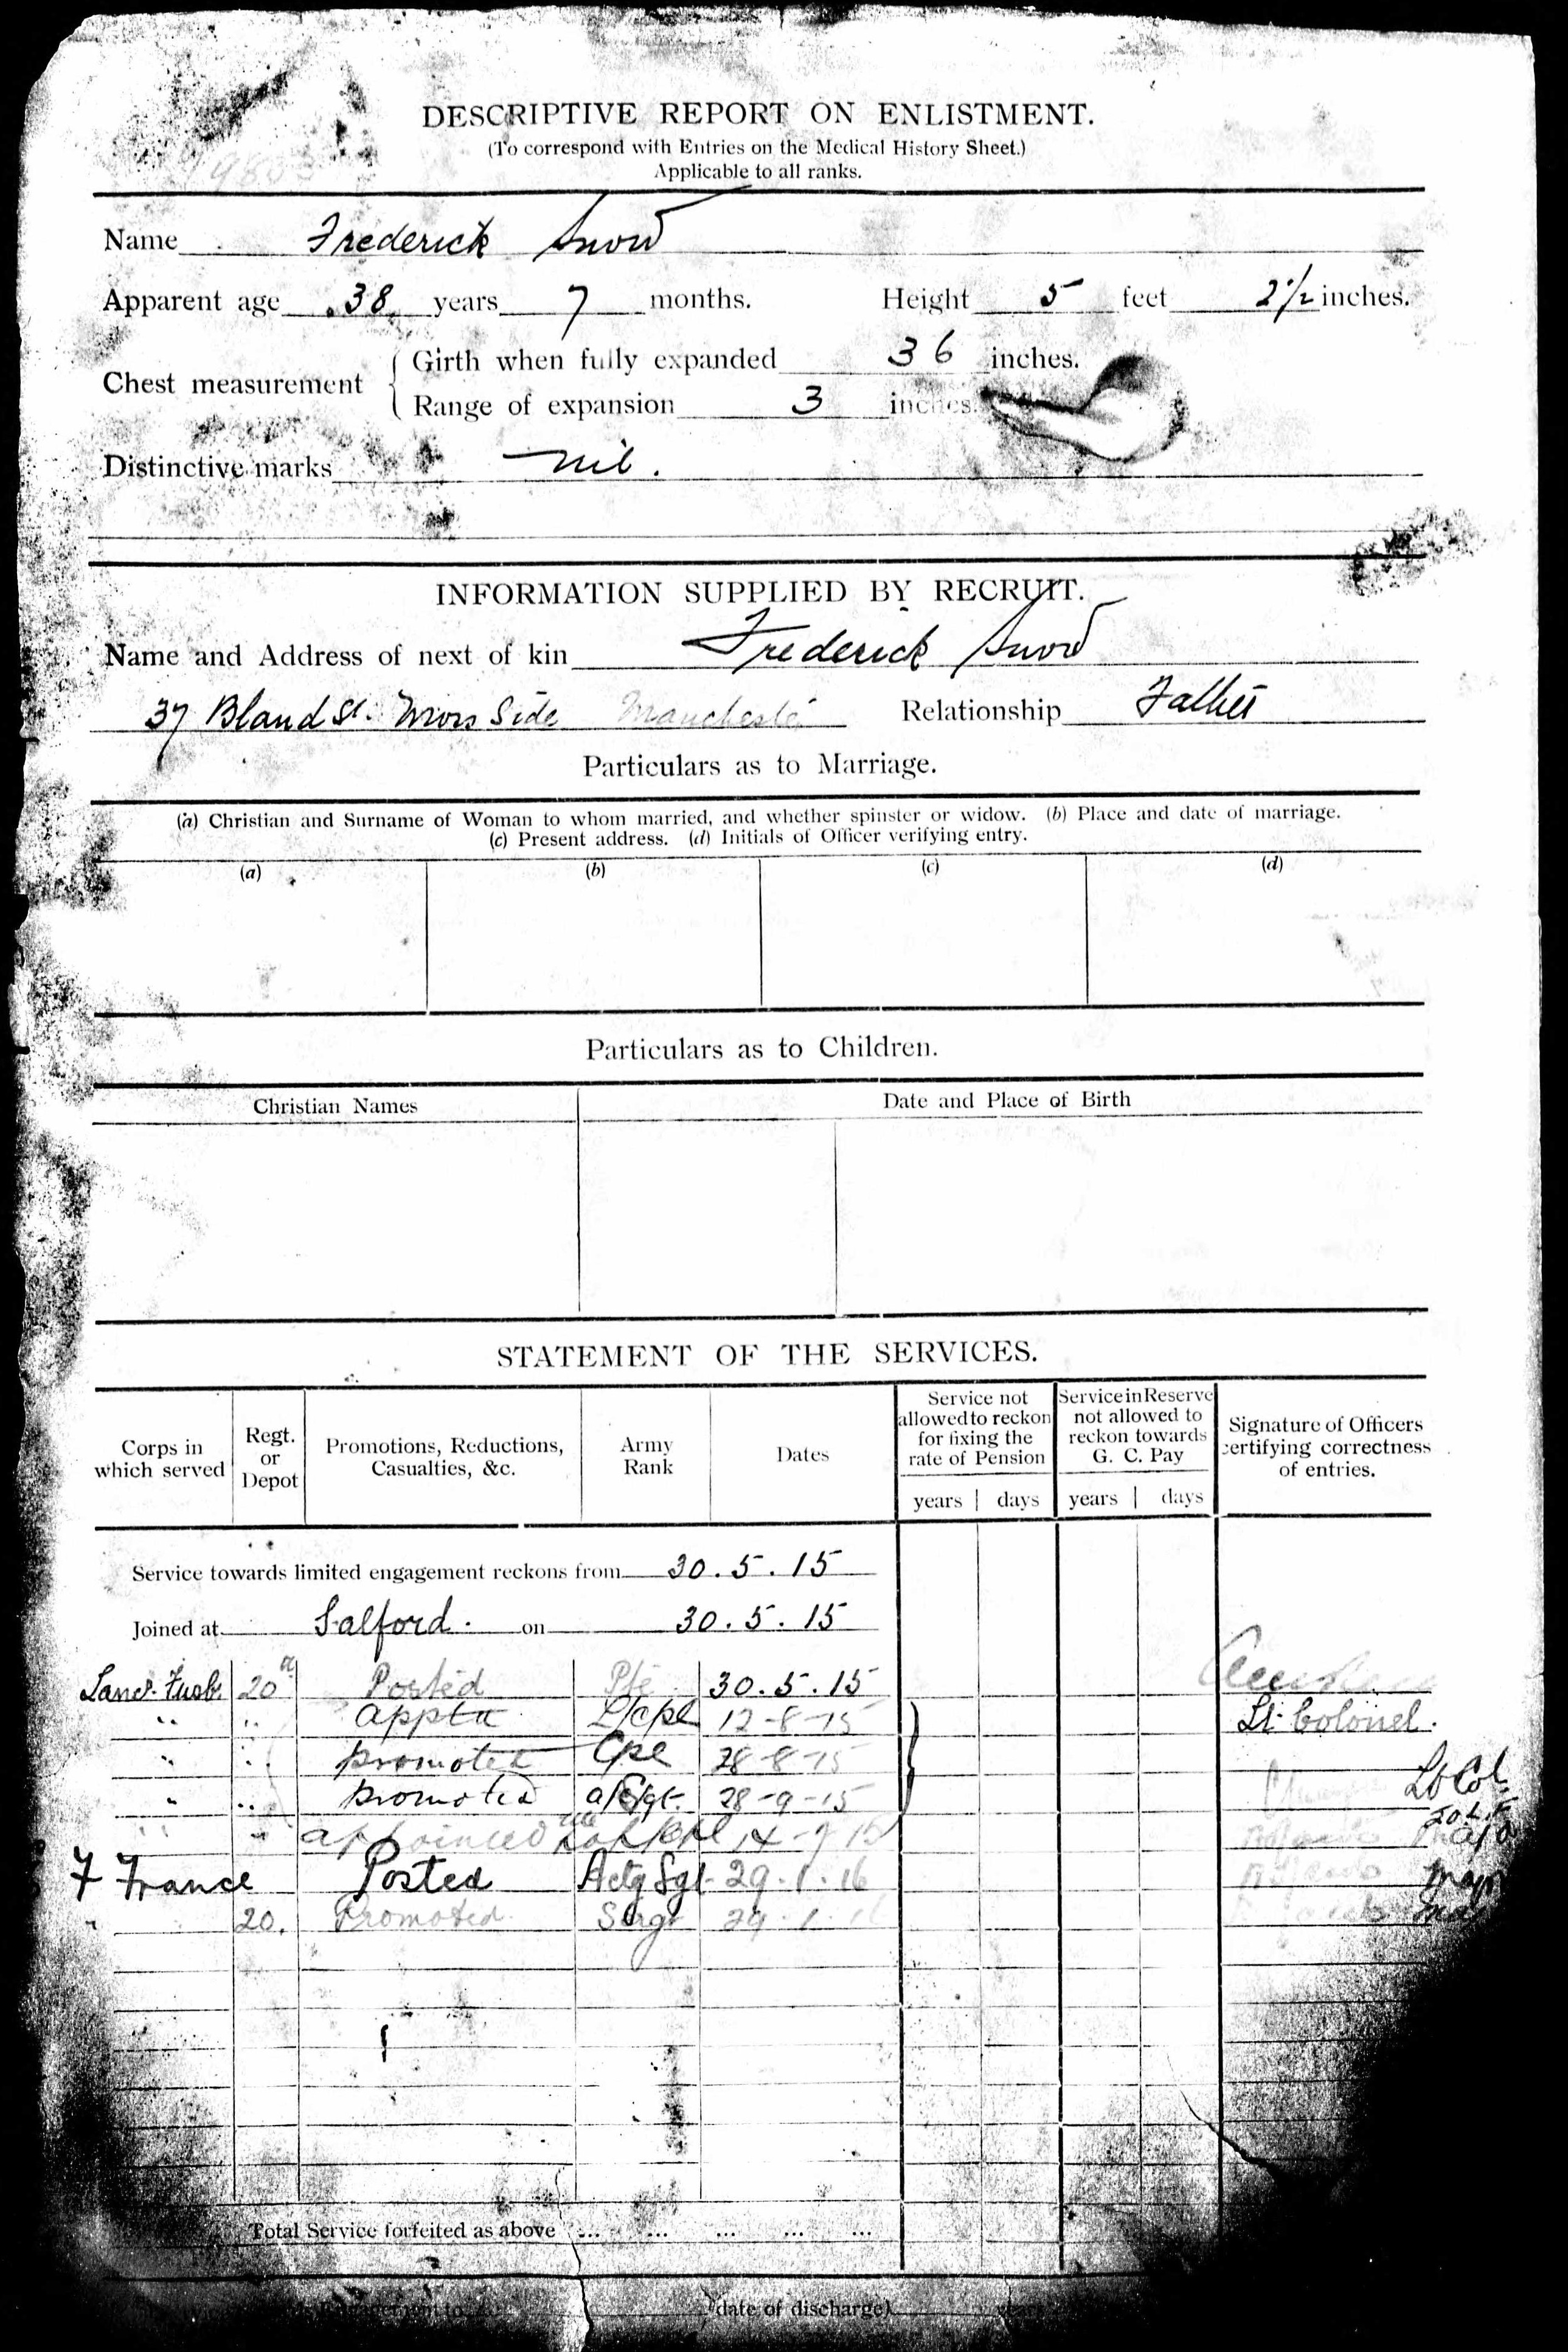 DESCRIPTIVE REPORT ON ENLISTMENT.
(To correspond with Entries on the Medical History Sheet.)
Applicable to all ranks.
Name Frederick Snow
Apparent age 38 years 7 months. Height 5 feet 2½ inches.
Chest measurement { Girth when fully expanded 36 inches.
Range of expansion 3 inches.
Distinctive marks nil.
INFORMATION SUPPLIED BY RECRUIT.
Name and Address of next of kin Frederick Snow
37 Bland St. Moss Side Manchester Relationship Father
Particulars as to Marriage.
(a) Christian and Surname of Woman to whom married, and whether spinster or widow. (b) Place and date of marriage.
(c) Present address. (d) Initials of Officer verifying entry.
(a) (b) (c) (d)
Particulars as to Children.
Christian Names Date and Place of Birth
STATEMENT OF THE SERVICES.
Corps in which served
Regt. or Depot
Promotions, Reductions, Casualties, &c.
Army Rank
Dates
Service not allowed to reckon for fixing the rate of Pension
years days
Service in Reserve not allowed to reckon towards G. C. Pay
years days
Signature of Officers certifying correctness of entries.
Service towards limited engagement reckons from 30.5.15
Joined at Salford. on 30.5.15
Lanc. Fusb. 20th Posted Pte 30.5.15
" " Apptd L/Cpl 12-8-15 Lt. Colonel.
" " promoted Cpl 28-8-15 Lt Col
" " promoted a/Sgt. 28-9-15 20 L.F
" " appointed
F France Posted Actg Sgt 29.1.16 Major
" 20. Promoted Sergt 29.1.16
Total Service forfeited as above ... ... ... ... ...
date of discharge)